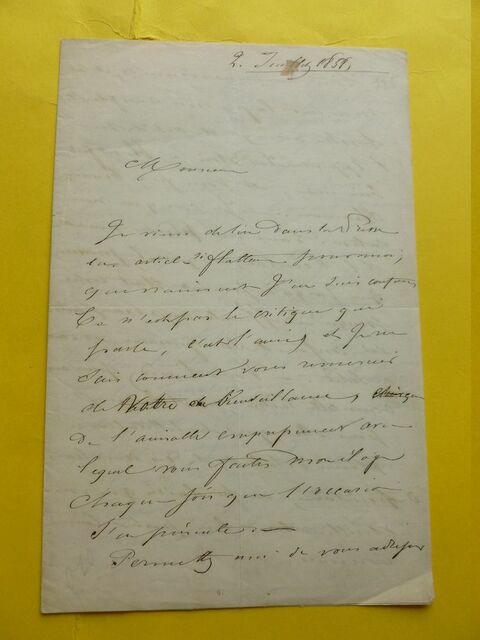 2. Juillet 1851
Monsieur
Je viens de lire dans la Presse
un article si flatteur pour moi,
que vraiment j'en suis confus
Ce n'est pas le critique qui
parle, c'est l'ami, et je ne
sais comment vous remercier
de Votre Bienveillance,
de l'aimable empressement avec
lequel vous faites mon éloge
chaque fois que l'occasion
s'en présente —
Permettez moi de vous adresser